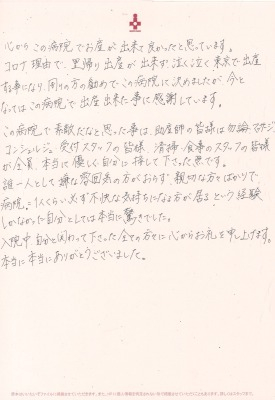 心からこの病院でお産が出来て良かったと思っています。
コロナ理由で、里帰り出産が出来ず、泣く泣く東京で出産
する事になり、周りの方の勧めでこの病院に決めましたが、今と
なってはこの病院で出産出来た事に感謝しています。
この病院で素敵だなと思った事は、助産師の皆様は勿論、
コンシェルジュ、受付スタッフの皆様、清掃・食事のスタッフの皆様
が全員、本当に優しく自分に接して下さった点です。
誰一人として嫌な雰囲気の方がおらず、親切な方々ばかりで
病院に1人くらい必ず不快な気持ちになる方が居るという経験
しかなかった自分としては本当に驚きでした。
入院中自分と関わって下さった全ての方々に心からお礼を申し上げます。
本当に本当にありがとうございました。